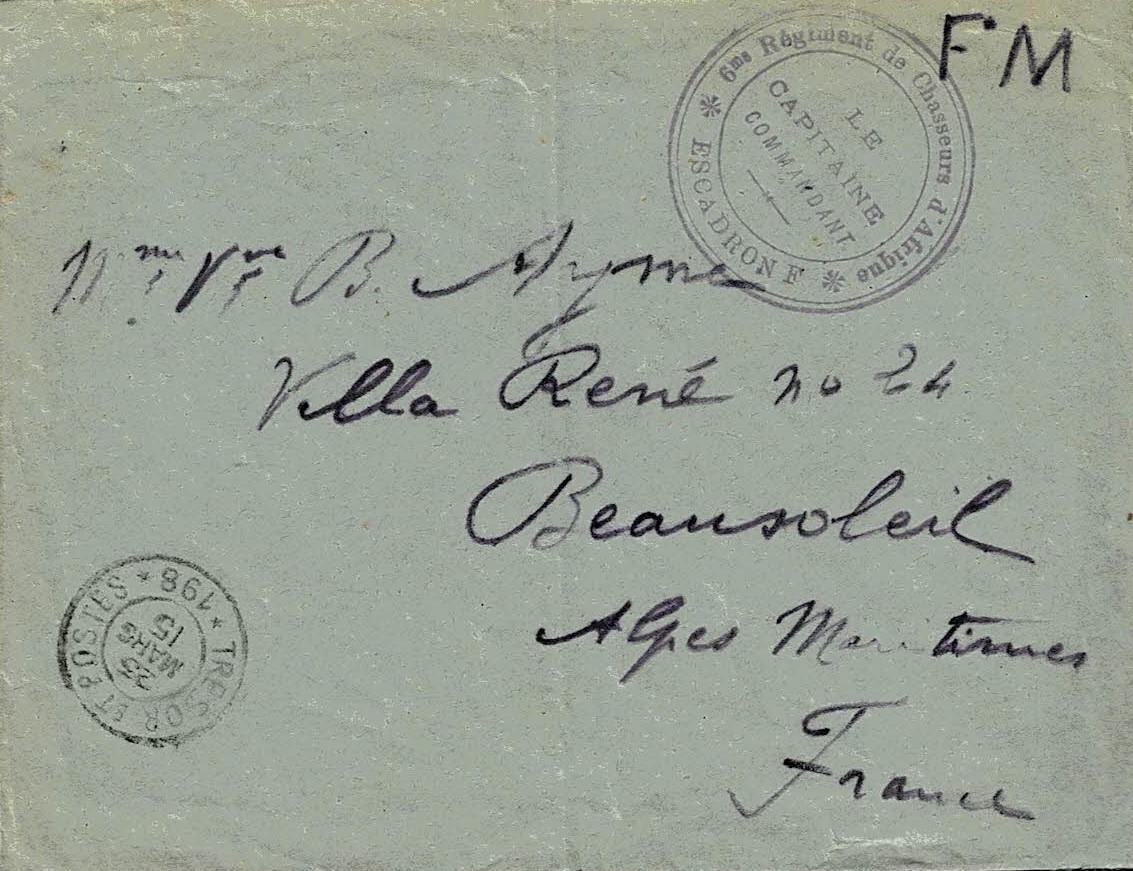 FM
6me Régiment de Chasseurs d'Afrique
ESCADRON F
LE
CAPITAINE
COMMANDANT
Mme Vve B. Ayme
Villa René no 24
Beausoleil
Alpes Maritimes
France
TRESOR ET POSTES * 198 *
23
MARS
15